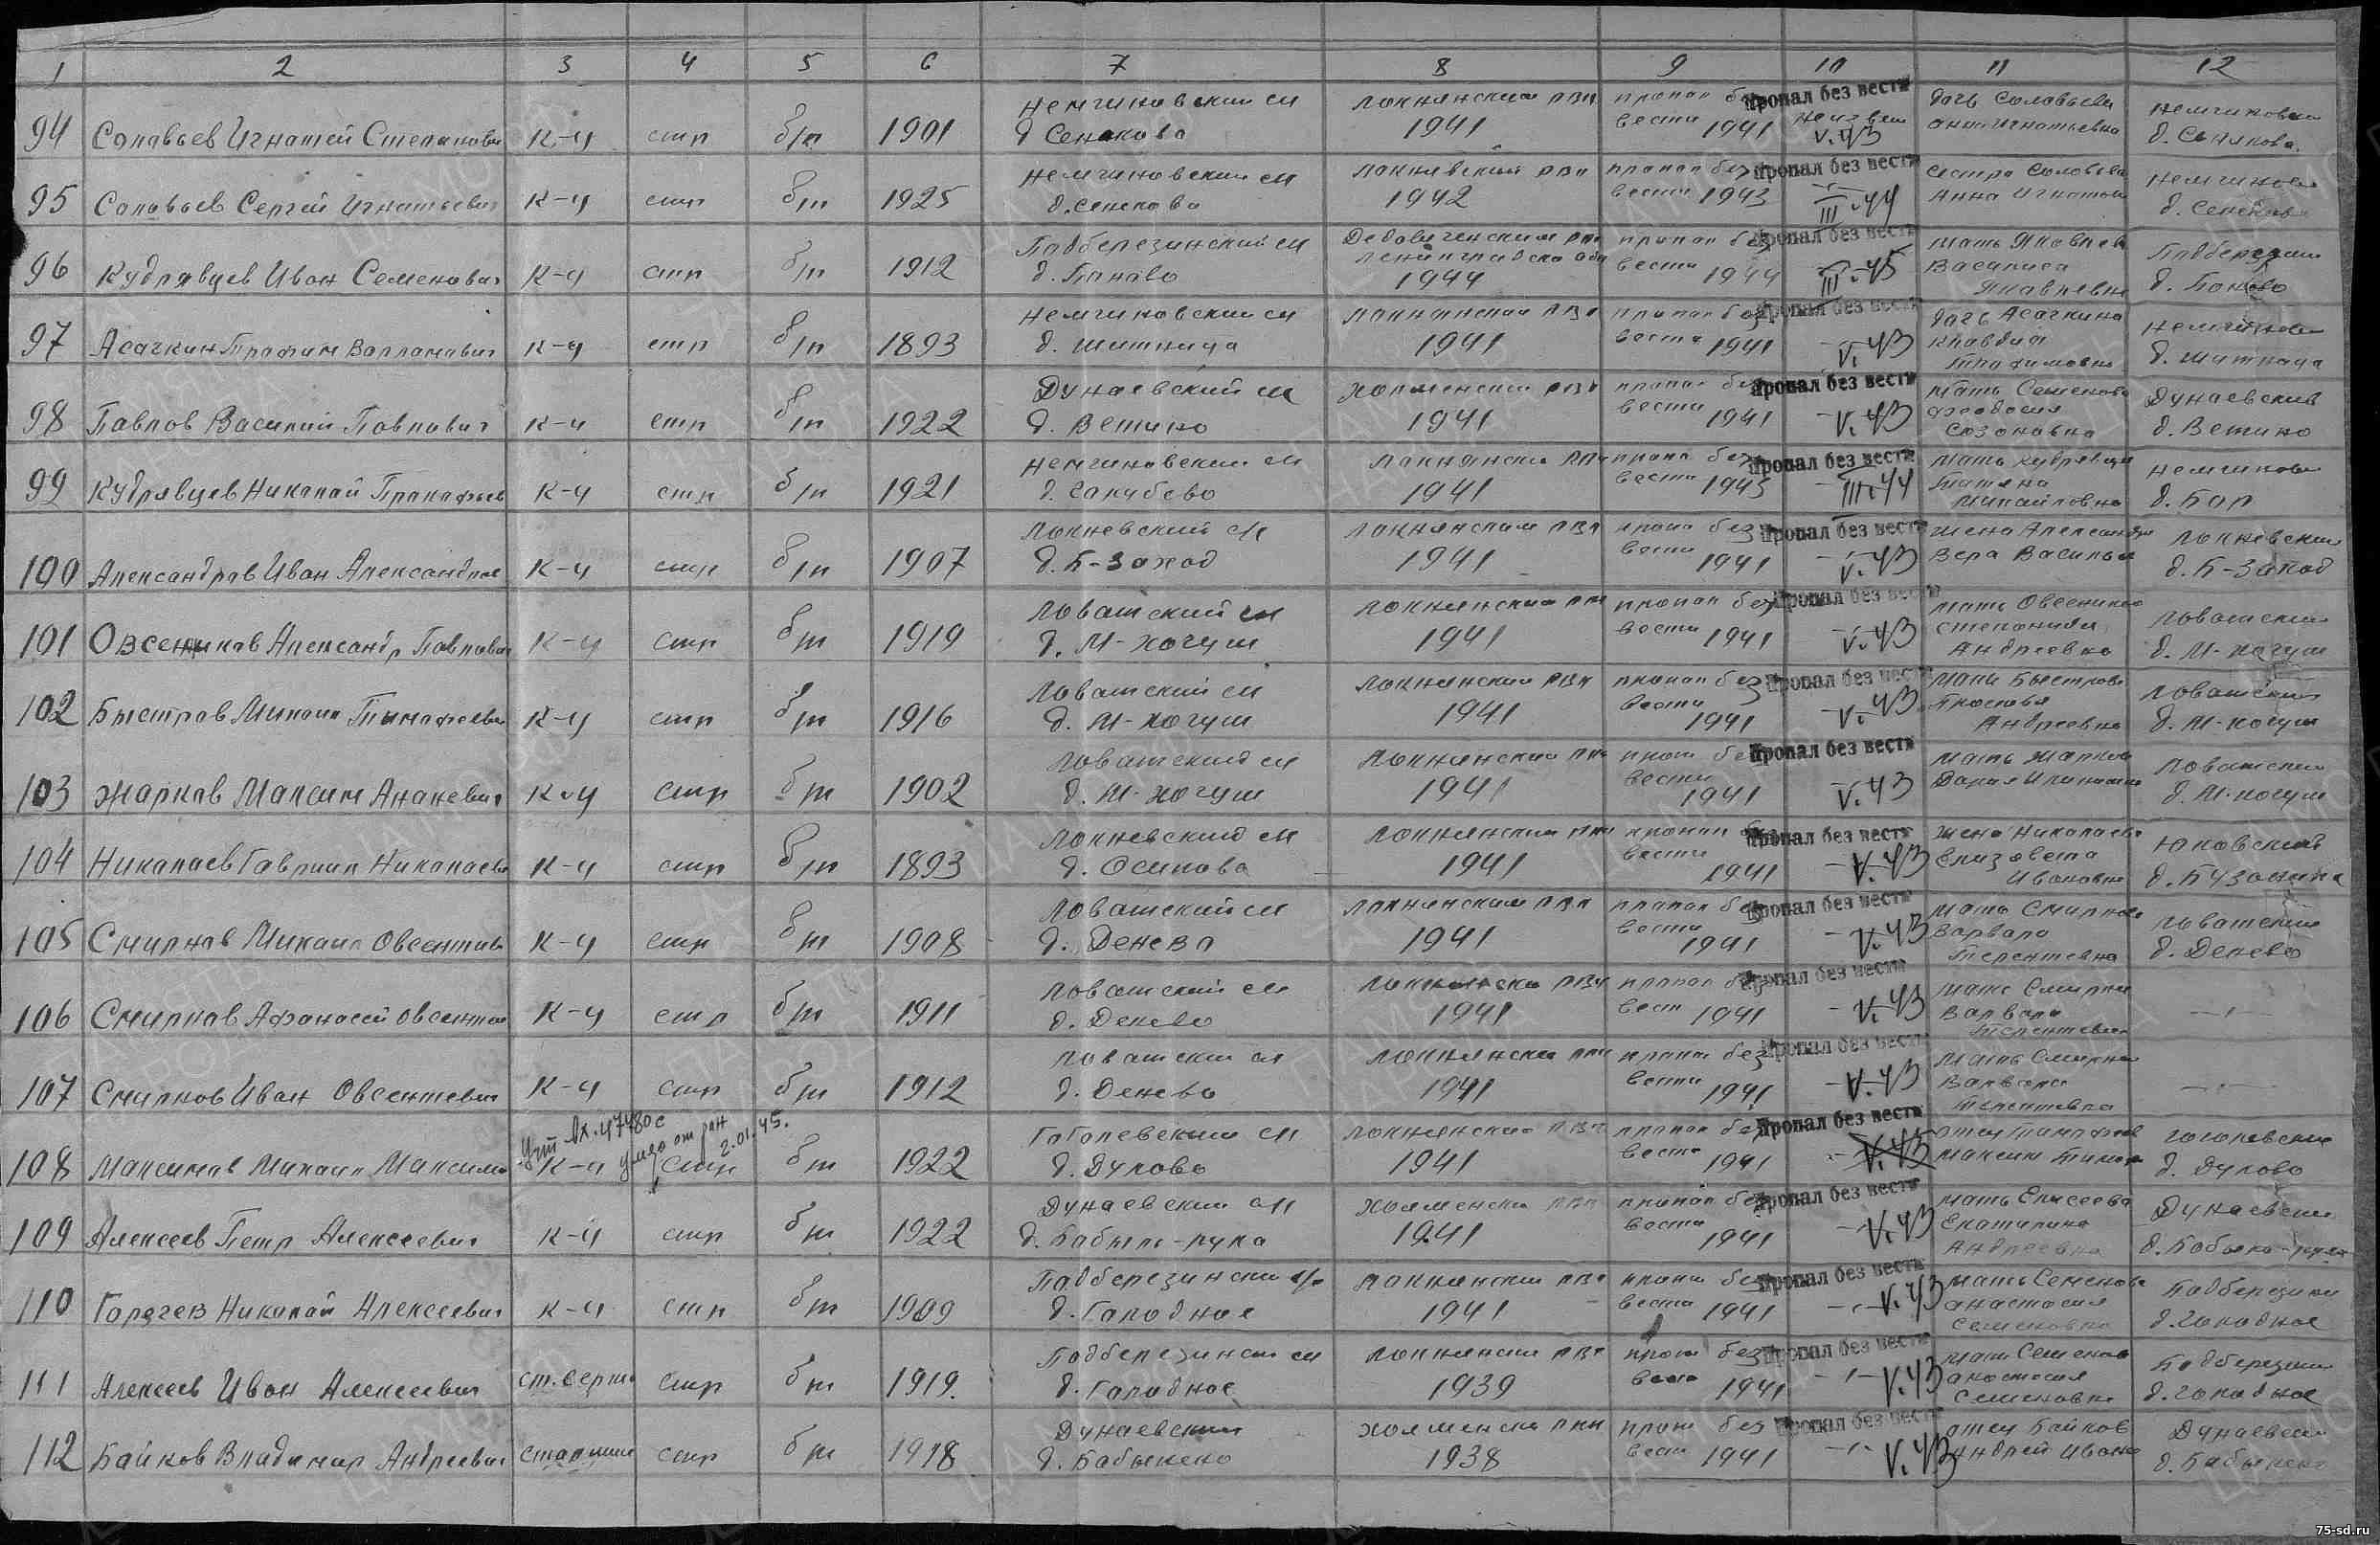 1 2 3 4 5 6 7 8 9 10 11 12
94 Соловьев Игнатей Степанович к-ц стр б/п 1901 Немчиновский с/с д Сенькова Локнянский РВК 1941 пропал без вести 1941 Пропал без вести неизвест V.43 дочь Соловьева Анна Игнатьевна Немчиновский д. Сенькова
95 Соловьев Сергей Игнатьевич к-ц стр б/п 1925 Немчиновский с/с д. Сенькова Локнянский РВК 1942 пропал без вести 1943 Пропал без вести III.44 сестра Соловьева Анна Игнатьев Немчинов д. Сеньково
96 Кудрявцев Иван Семенович к-ц стр б/п 1912 Подберезинский с/с д. Паново Дедовиченский РВК Ленинградско обл 1944 пропал без вести 1944 Пропал без вести III.45 мать Яковлев Василиса Яковлевна Подберезин д. Паново
97 Асачкин Трофим Варламович к-ц стр б/п 1893 Немчиновский с/с д. Житница Локнянский РВК 1941 пропал без вести 1941 Пропал без вести V.43 дочь Асачкина Клавдия Трофимовна Немчинов д. Житница
98 Павлов Василий Павлович к-ц стр б/п 1922 Дунаевский с/с д. Ветино Холменский РВК 1941 пропал без вести 1941 Пропал без вести V.43 мать Семенова Феодосия Созоновна Дунаевский д. Ветино
99 Кудрявцев Николай Прокофьев к-ц стр б/п 1921 Немчиновский с/с Локнянски РВК 1941 пропал без вести 1943 Пропал без вести III.44 мать Кудрявцев Татьяна Михайловна Немчинов д. Бор
100 Александров Иван Александров к-ц стр б/п 1907 Локневский с/с д. Б-Заход Локнянский РВК 1941 пропал без вести 1941 Пропал без вести V.43 жена Александро Вера Василье Локневский д. Б-Заход
101 Овсеников Александр Павлович к-ц стр б/п 1919 Ловатский с/с д. М-Хочуш Локнянский РВК 1941 пропал без вести 1941 Пропал без вести V.43 мать Овсеников Степанида Андреевна Ловатский д. М-Хочуш
102 Быстров Михаил Тимофеевич к-ц стр б/п 1916 Ловатский с/с д. М-Хочуш Локнянский РВК 1941 пропал без вести 1941 Пропал без вести V.43 мать Быстрова Андреевна Ловатский д. М-Хочуш
103 Жарков Максим Ананевич к-ц стр б/п 1902 Ловатский с/с д. М-Хочуш Локнянский РВК 1941 пропал без вести 1941 Пропал без вести V.43 мать Жарков Дарья Ловатский д. М-Хочуш
104 Николаев Гавриил Николаевич к-ц стр б/п 1893 Локневский с/с д. Осипова Локнянский РВК 1941 пропал без вести 1941 Пропал без вести V.43 жена Николаева Елизавета Ивановна Юховский
105 Смирнов Михаил Овсентьев к-ц стр б/п 1908 Ловатский с/с д. Денева Локнянский РВК 1941 пропал без вести 1941 Пропал без вести V.43 мать Смирнова Варвара Терентевна Ловатский д. Денево
106 Смирнов Афанасий Овсентев к-ц стр б/п 1911 Ловатский с/с д. Денево Локнянски РВК 1941 пропал без вести 1941 Пропал без вести V.43 мать Смирнов Варвара Терентевна —"—
107 Смирнов Иван Овсентевич к-ц стр б/п 1912 Ловатский с/с д. Денево Локнянски РВК 1941 пропал без вести 1941 Пропал без вести V.43 мать Смирнов Варвара Терентевна —"—
Учт вх. 47480с умер от ран 2.01.45.
108 Максимов Михаил Максимо к-ц стр б/п 1922 Гоголевский с/с д. Дулово Локнянский РВК 1941 пропал без вести 1941 Пропал без вести V.43 отец Тимофеев Максим Тимоф Гоголевский д. Дулово
109 Алексеев Петр Алексеевич к-ц стр б/п 1922 Дунаевский с/с д. Бабыль-рука Холменски РВК 1941 пропал без вести 1941 Пропал без вести V.43 мать Елисеева Екатирина Андреевна Дунаевский
110 Горячев Николай Алексеевич к-ц стр б/п 1909 Подберезински с/с д. Голодное Локнянский РВК 1941 пропал без вести 1941 Пропал без вести V.43 мать Семенова Анастасия Семеновна Подберезин д. Голодное
111 Алексеев Иван Алексеевич ст. сержа стр б/п 1919. Подберезинский с/с д. Голодное Локнянский РВК 1939 пропал без вести 1941 Пропал без вести V.43 мать Семенова Анастасия Семеновна Подберезин д. Голодное
112 Байков Владимир Андреевич старшин стр б/п 1918 Дунаевский д. Бабыкено Холменски РВК 1938 пропал без вести 1941 Пропал без вести V.43 отец Байков Андрей Ивано Дунаевский д. Бабыкено
75-sd.ru